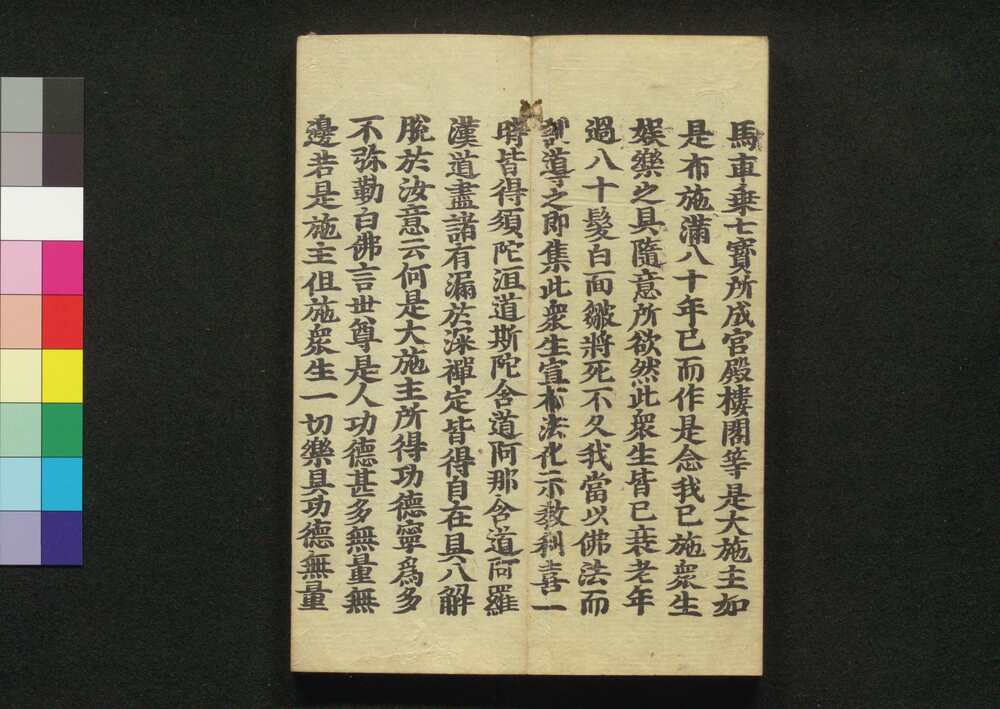 馬車乗七寳所成宮殿樓閣等是大施主如
是布施滿八十年已而作是念我已施衆生
娯樂之具隨意所欲然此衆生皆已衰老年
過八十髮白面皺將死不久我當以佛法而
訓導之即集此衆生宣布法化示教利喜一
時皆得須陀洹道斯陀含道阿那含道阿羅
漢道盡諸有漏於深禪定皆得自在具八解
脫於汝意云何是大施主所得功德寧爲多
不弥勒白佛言世尊是人功德甚多無量無
邊若是施主但施衆生一切樂具功德無量